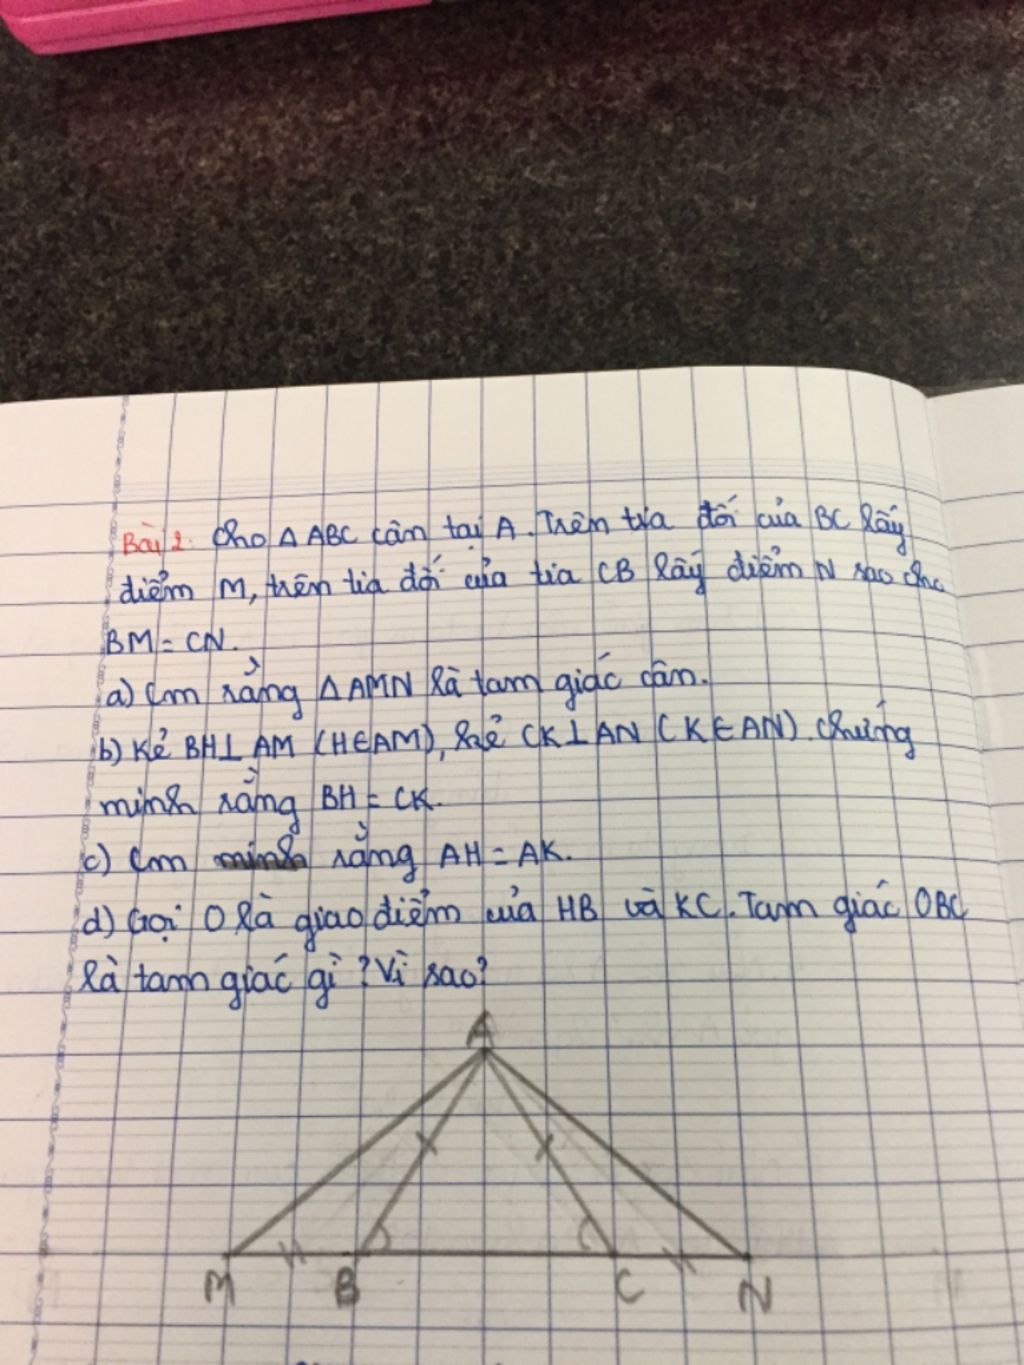 Bài 2: Cho Δ ABC cân tại A. Trên tia đối của BC lấy
điểm M, trên tia đối của tia CB lấy điểm N sao cho
BM = CN.
a) Cm rằng Δ AMN là tam giác cân.
b) Kẻ BH⊥AM (H∈AM), kẻ CK⊥AN (K∈AN). Chứng
minh rằng BH = CK.
c) Cm rằng AH = AK.
d) Gọi O là giao điểm của HB và KC. Tam giác OBC
là tam giác gì? Vì sao?
A
M B C N